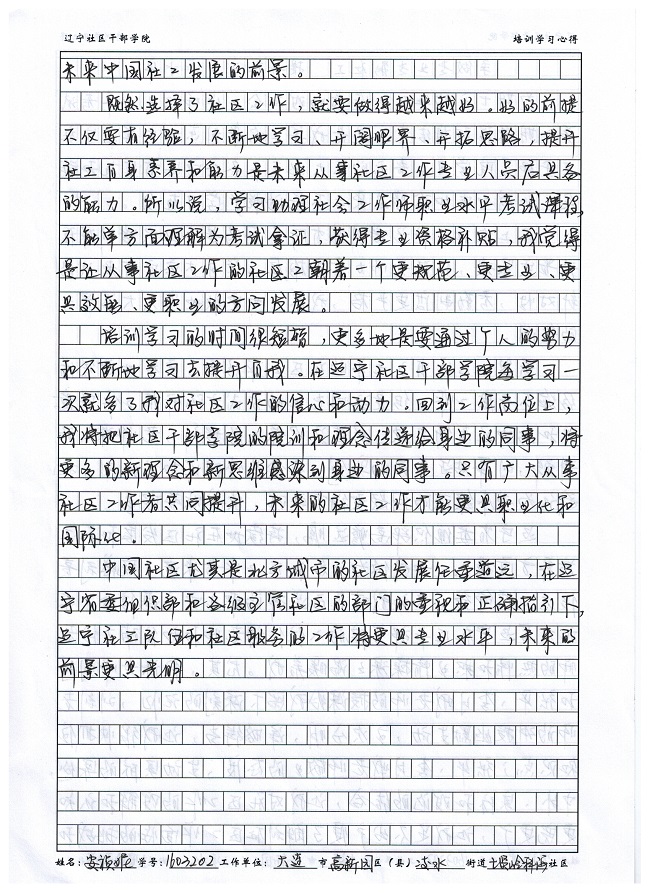 辽宁社区干部学院 培训学习心得
未来中国社工发展的前景。
既然选择了社区工作，就要做得越来越好。好的前提
不仅要有经验，不断地学习、开阔眼界、开拓思路，提升
社工自身素养和能力是未来从事社区工作专业人员应具备
的能力。所以说，学习助理社会工作师职业水平考试课程，
不能单方面理解为考试拿证，获得专业资格补贴，我觉得
是让从事社区工作的社区工朝着一个更规范、更专业、更
具效能、更职业的方向发展。
培训学习的时间很短暂，更多地是要通过个人的努力
和不断地学习去提升自我。在辽宁社区干部学院每学习一
次就多了我对社区工作的信心和动力。回到工作岗位上，
我将把社区干部学院的培训和理念传递给身边的同事，将
更多的新理念和新思维感染到身边的同事。只有广大从事
社区工作者共同提升，未来的社区工作才能更具职业化和
国际化。
中国社区尤其是北方城市的社区发展任重道远，在辽
宁省委组织部和各级主管社区的部门的重视和正确指引下，
辽宁社工队伍和社区服务的工作将更具专业水平，未来的
前景更具光明。
姓名：安 学号：1603202 工作单位：大连 市 高新园 区（县）凌水 街道 社区